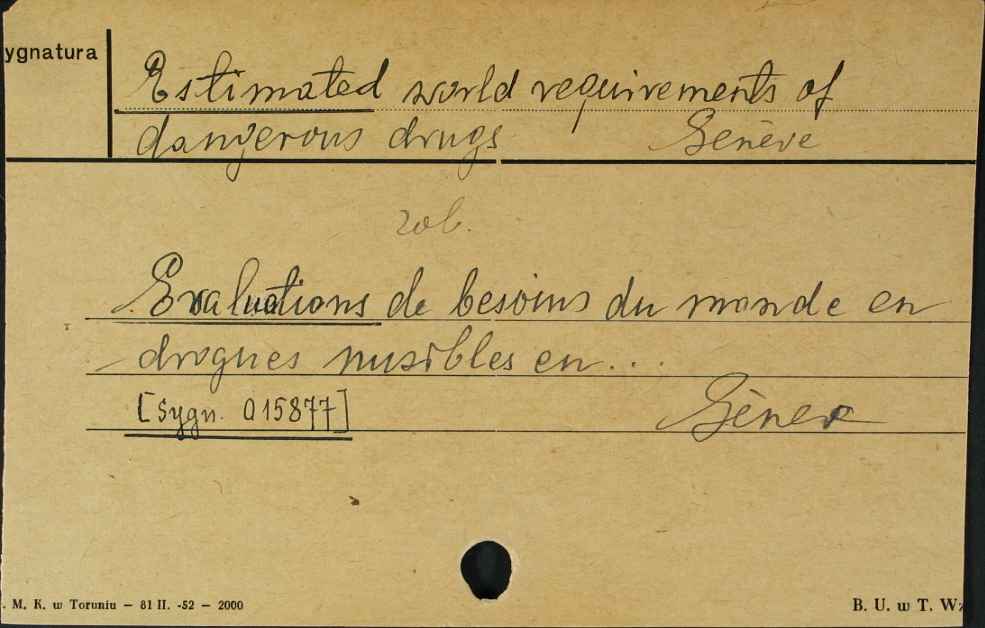 ygnatura
Estimated world requirements of
dangerous drugs Genève
zob.
Evaluations de besoins du monde en
drogues nusibles en...
[Sygn. 015877] Gènev
. M. K. w Toruniu — 81 II. -52 — 2000
B. U. w T. Wz